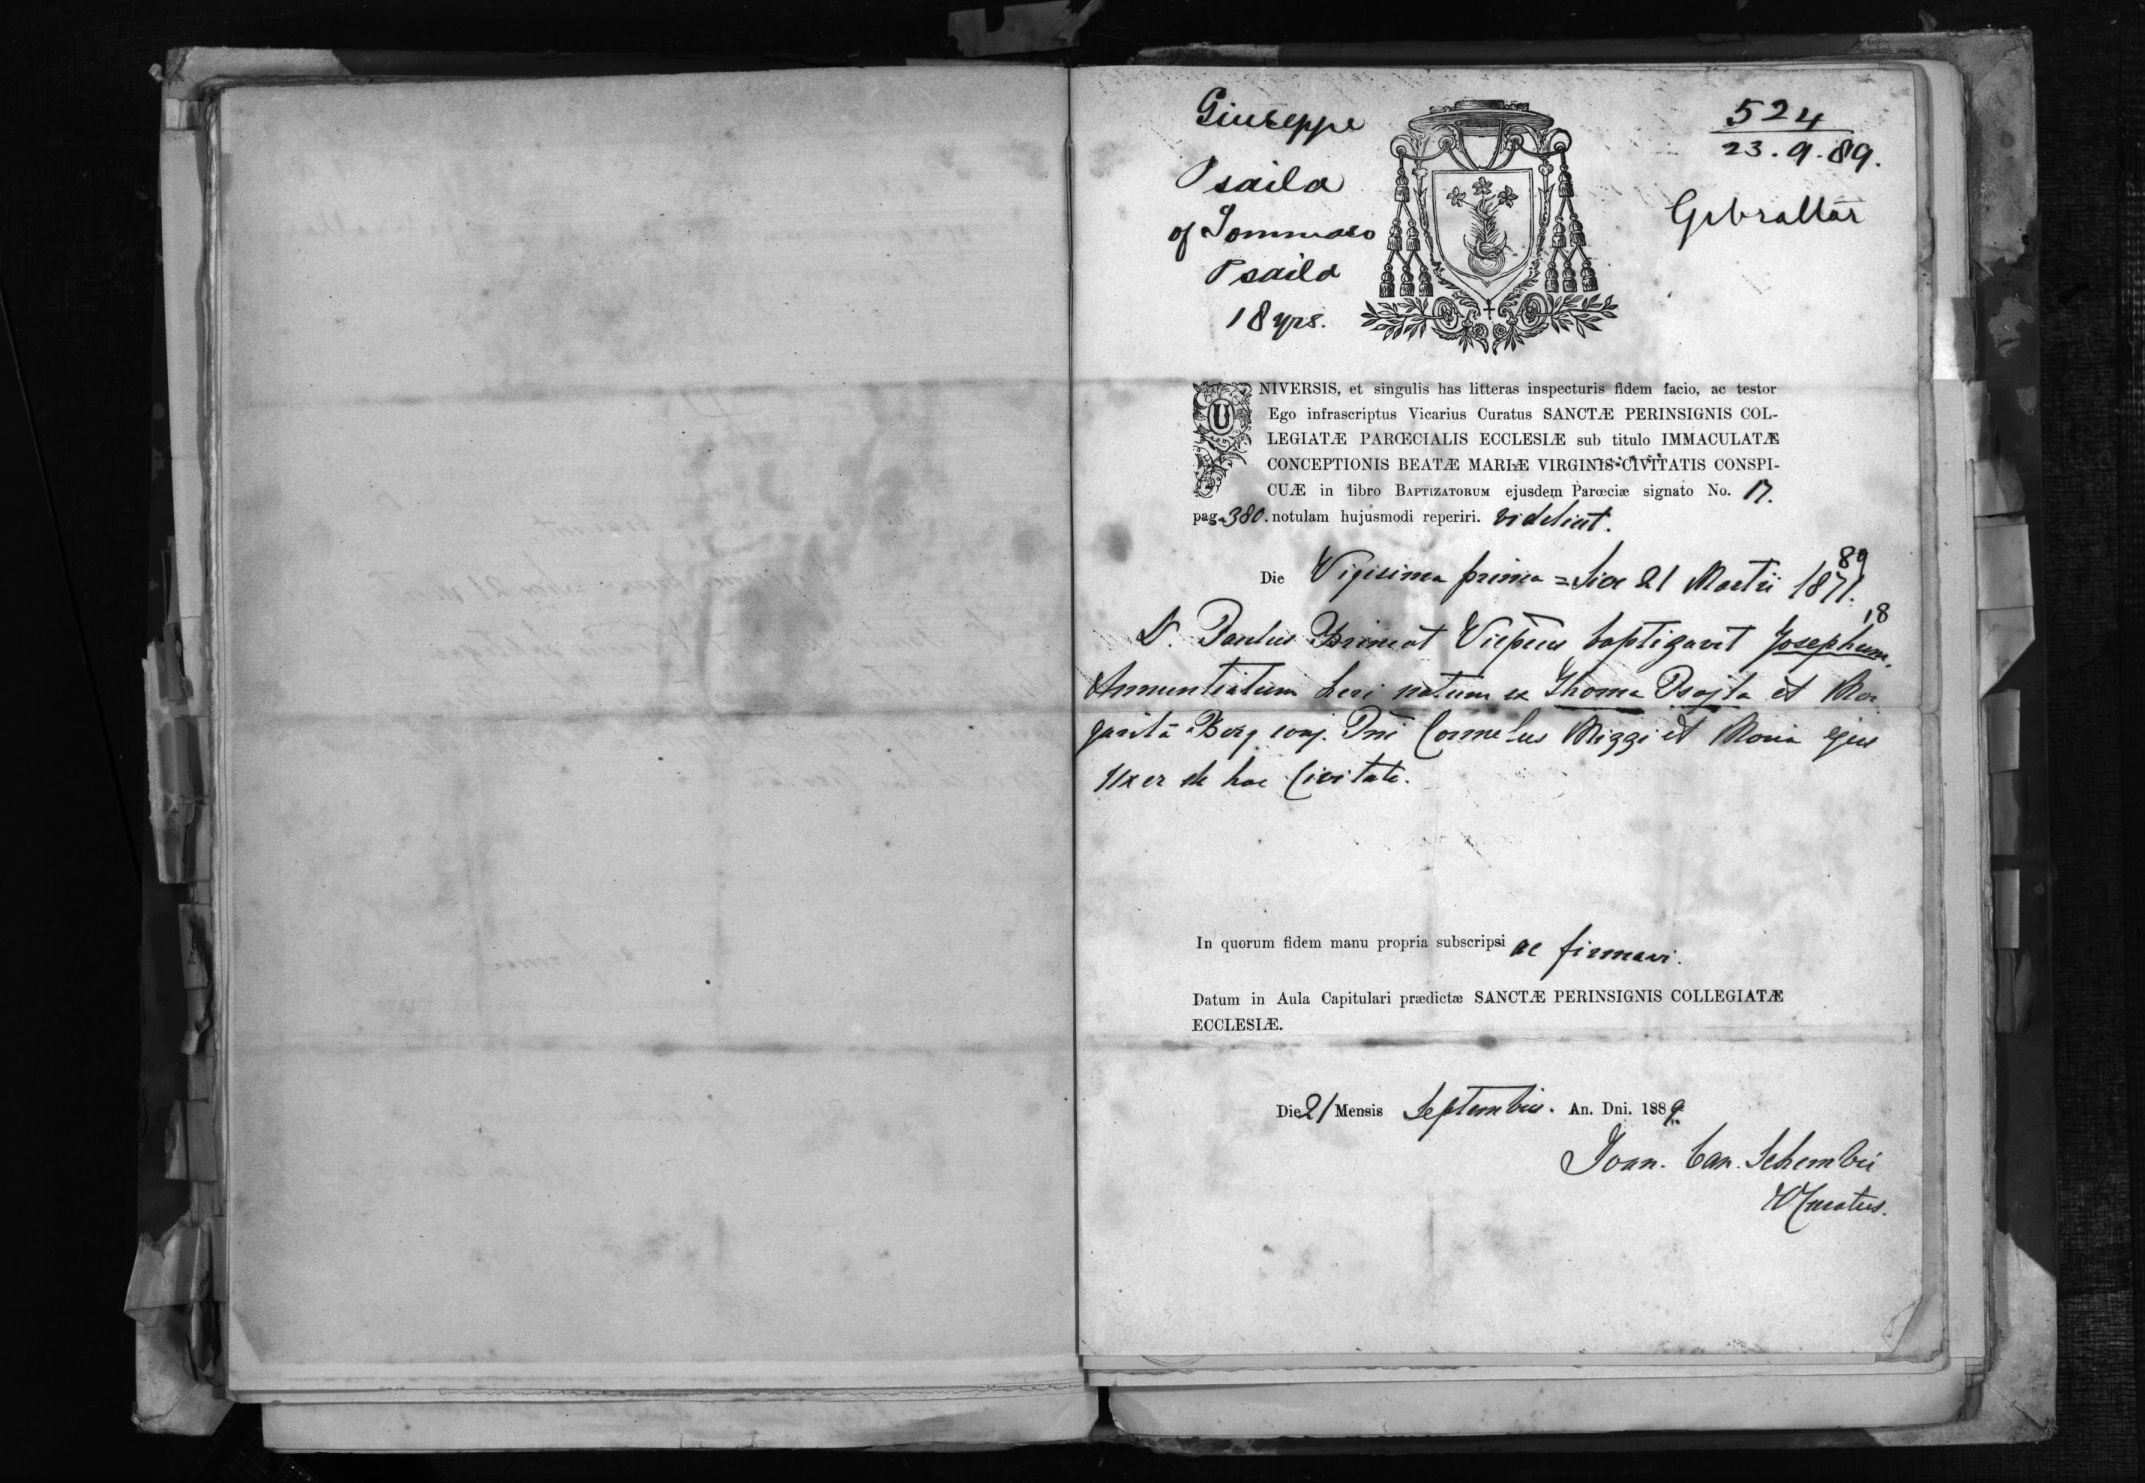 Giuseppe
Psaila
of Tommaso
Psaila
18 yrs.
524
23.9.89.
Gibraltar
UNIVERSIS, et singulis has litteras inspecturis fidem facio, ac testor
Ego infrascriptus Vicarius Curatus SANCTÆ PERINSIGNIS COL-
LEGIATÆ PARŒCIALIS ECCLESIÆ sub titulo IMMACULATÆ
CONCEPTIONIS BEATÆ MARIÆ VIRGINIS CIVITATIS CONSPI-
CUÆ in libro BAPTIZATORUM ejusdem Parœciæ signato No. 17.
pag. 380. notulam hujusmodi reperiri. videlicet.
89
Die Vigisima prima = die 21 Martii 1871.
18
D. Paulus Vicepcus baptizavit Josephum,
Annuntiatum heri natum ex Thoma Psajla et Mar
garita Borg conj. Pni Cornelus Mizzi et Maria ejus
Uxer de hac Civitate.
In quorum fidem manu propria subscripsi ac firmavi.
Datum in Aula Capitulari prædictæ SANCTÆ PERINSIGNIS COLLEGIATÆ
ECCLESIÆ.
Die 21 Mensis Septembris. An. Dni. 1889
Joan. Can. Schembri
VCuratus.